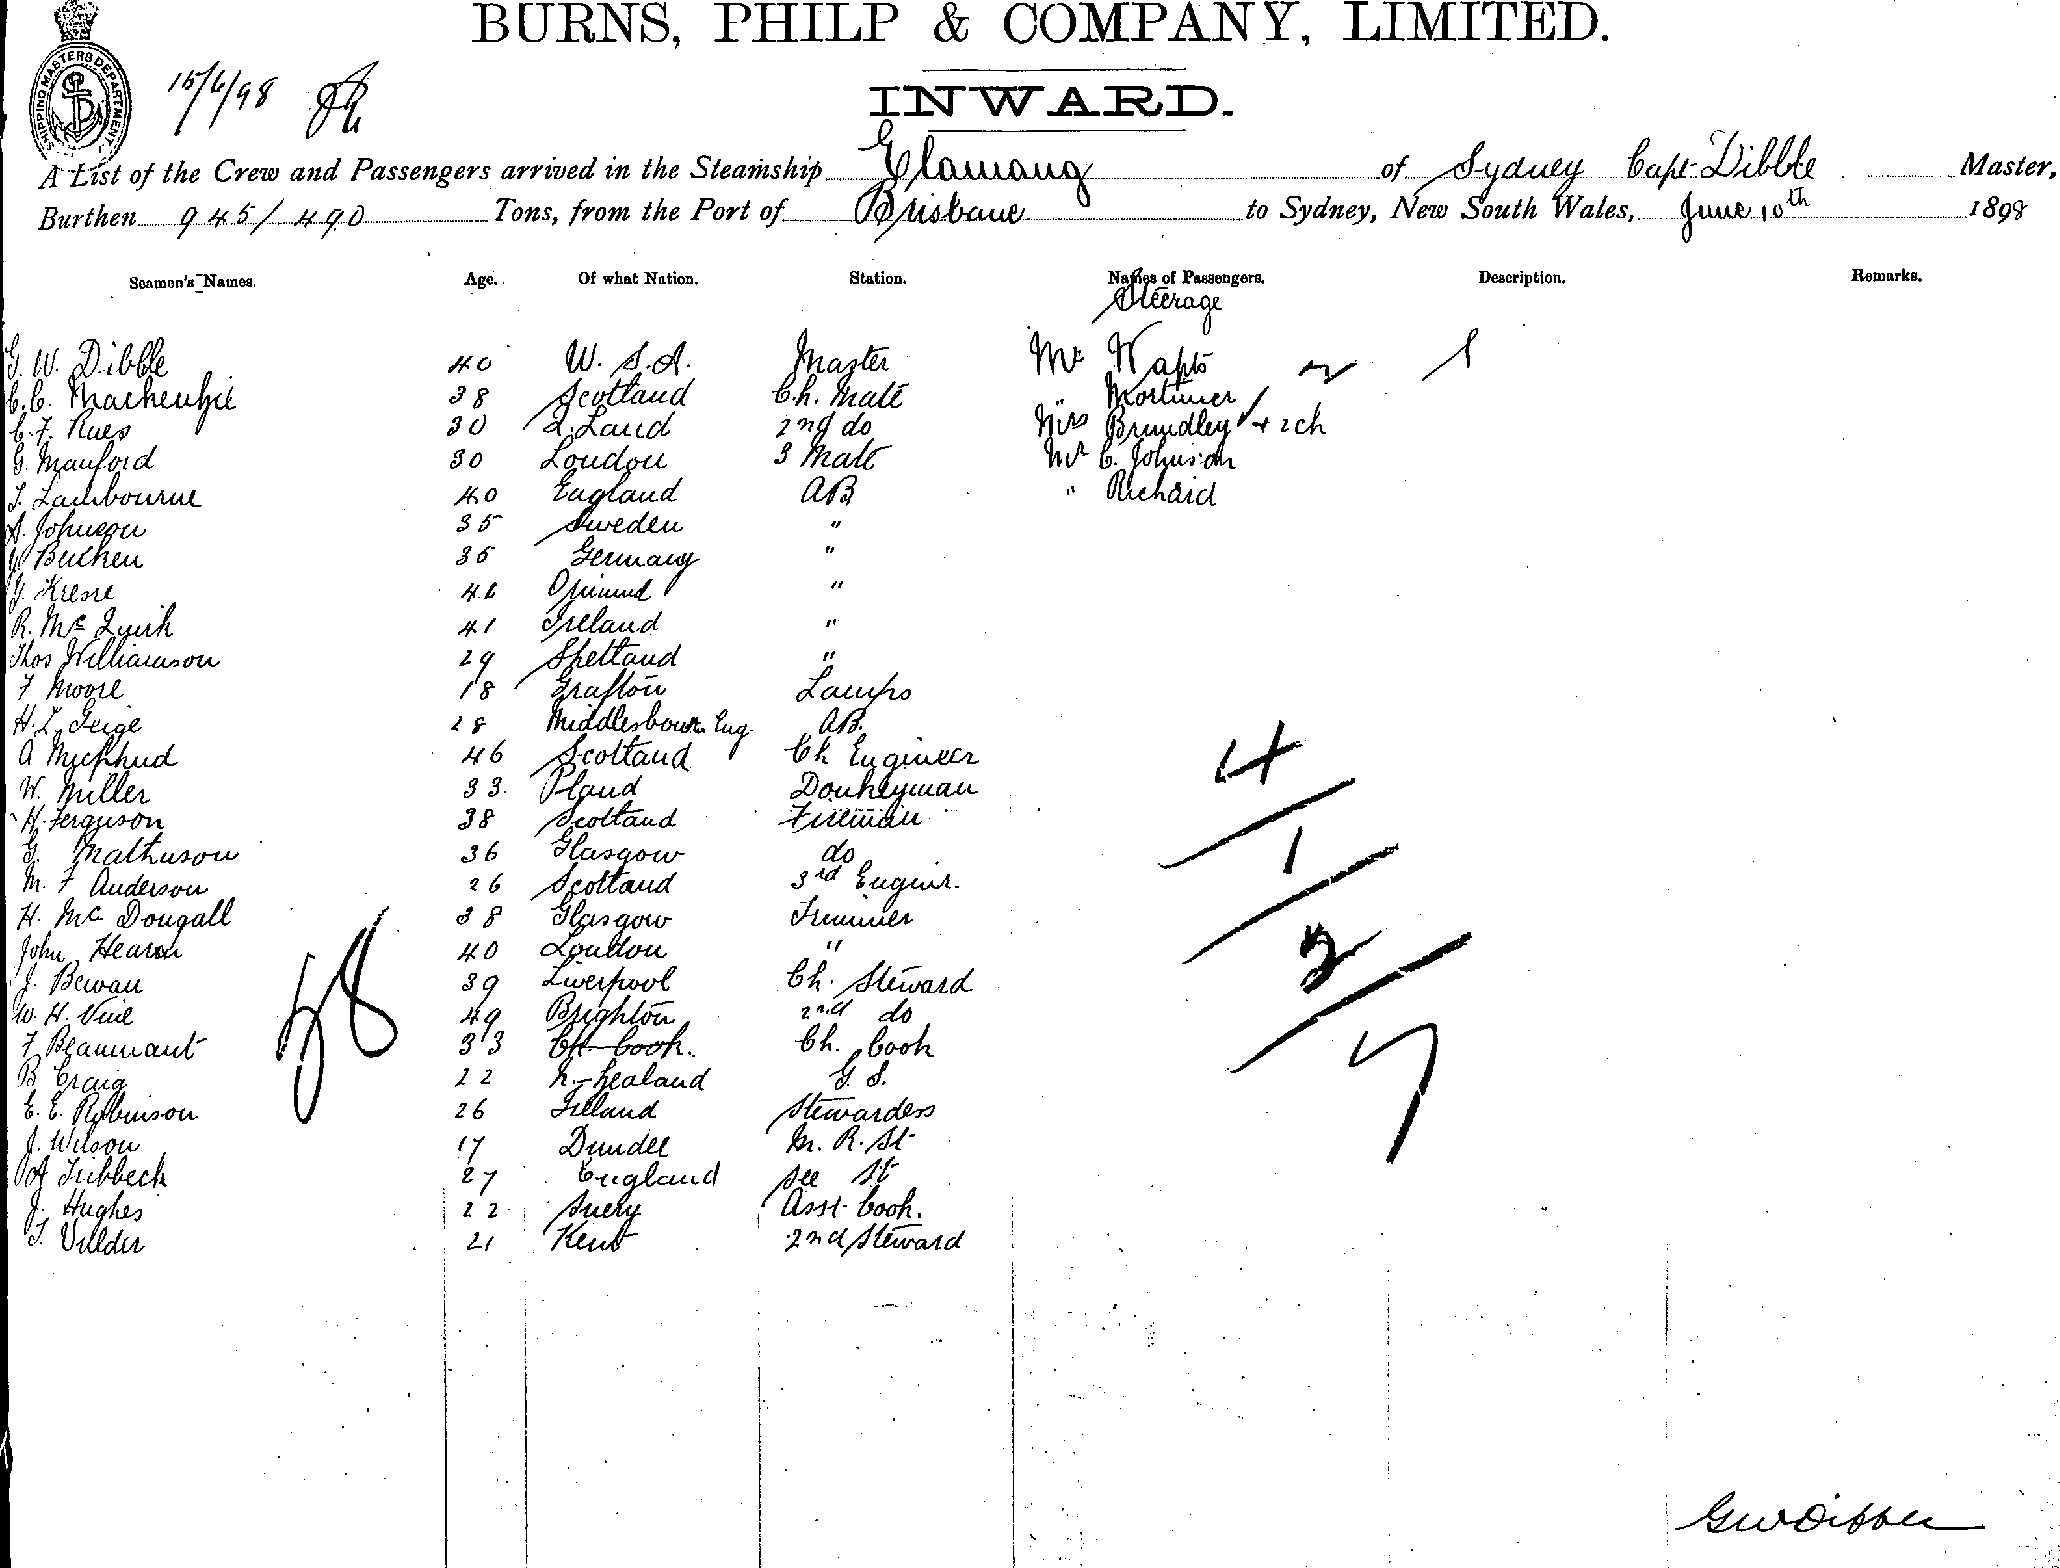 BURNS, PHILP & COMPANY, LIMITED.
SHIPPING MASTERS DEPARTMENT
15/6/98
INWARD.
A List of the Crew and Passengers arrived in the Steamship Elamang of Sydney Capt Dibble Master,
Burthen 945/490 Tons, from the Port of Brisbane to Sydney, New South Wales, June 10th 1898
Seamen's Names. Age. Of what Nation. Station. Names of Passengers. Description. Remarks.
Steerage
G. W. Dibble 40 Master Mr
C. C. Mackenzie 38 Scotland Ch. Mate " Mortimer
C. F. 30 2nd do Mrs Brundley + 2 ch
G. Manford 30 London 3 Mate Mr C. Johnson
T. Lambourne 40 England AB " Richard
A. Johnson 35 Sweden "
35 Germany "
46 "
R. Mc Quirk 41 Ireland "
Thos Williamson 29 Shetland "
F Moore 18 Grafton Lamps
H. L. Geige 28 Eng AB.
A 46 Scotland Ch Engineer
W. Miller 33. Donkeyman
H. Ferguson 38 Scotland Fireman
G. Mathuson 36 Glasgow do
M. F Anderson 26 Scotland 3rd Enginr.
H. Mc Dougall 38 Glasgow Trimmer
John Hearn 40 London "
J. Bewan 39 Liverpool Ch. Steward
W. H. Vine 49 Brighton 2nd do
F Beaumant 33 Ch. Cook. Ch. Cook
B Craig 22 N. Zealand G. S.
E. E. Robinson 26 Ireland Stewardess
J. Wilson 17 Dundee M. R. St
Tubbeck 27 England St
J. Hughes 22 Asst Cook.
T. 21 Kent 2nd Steward
4
1
2
7
GWDibble